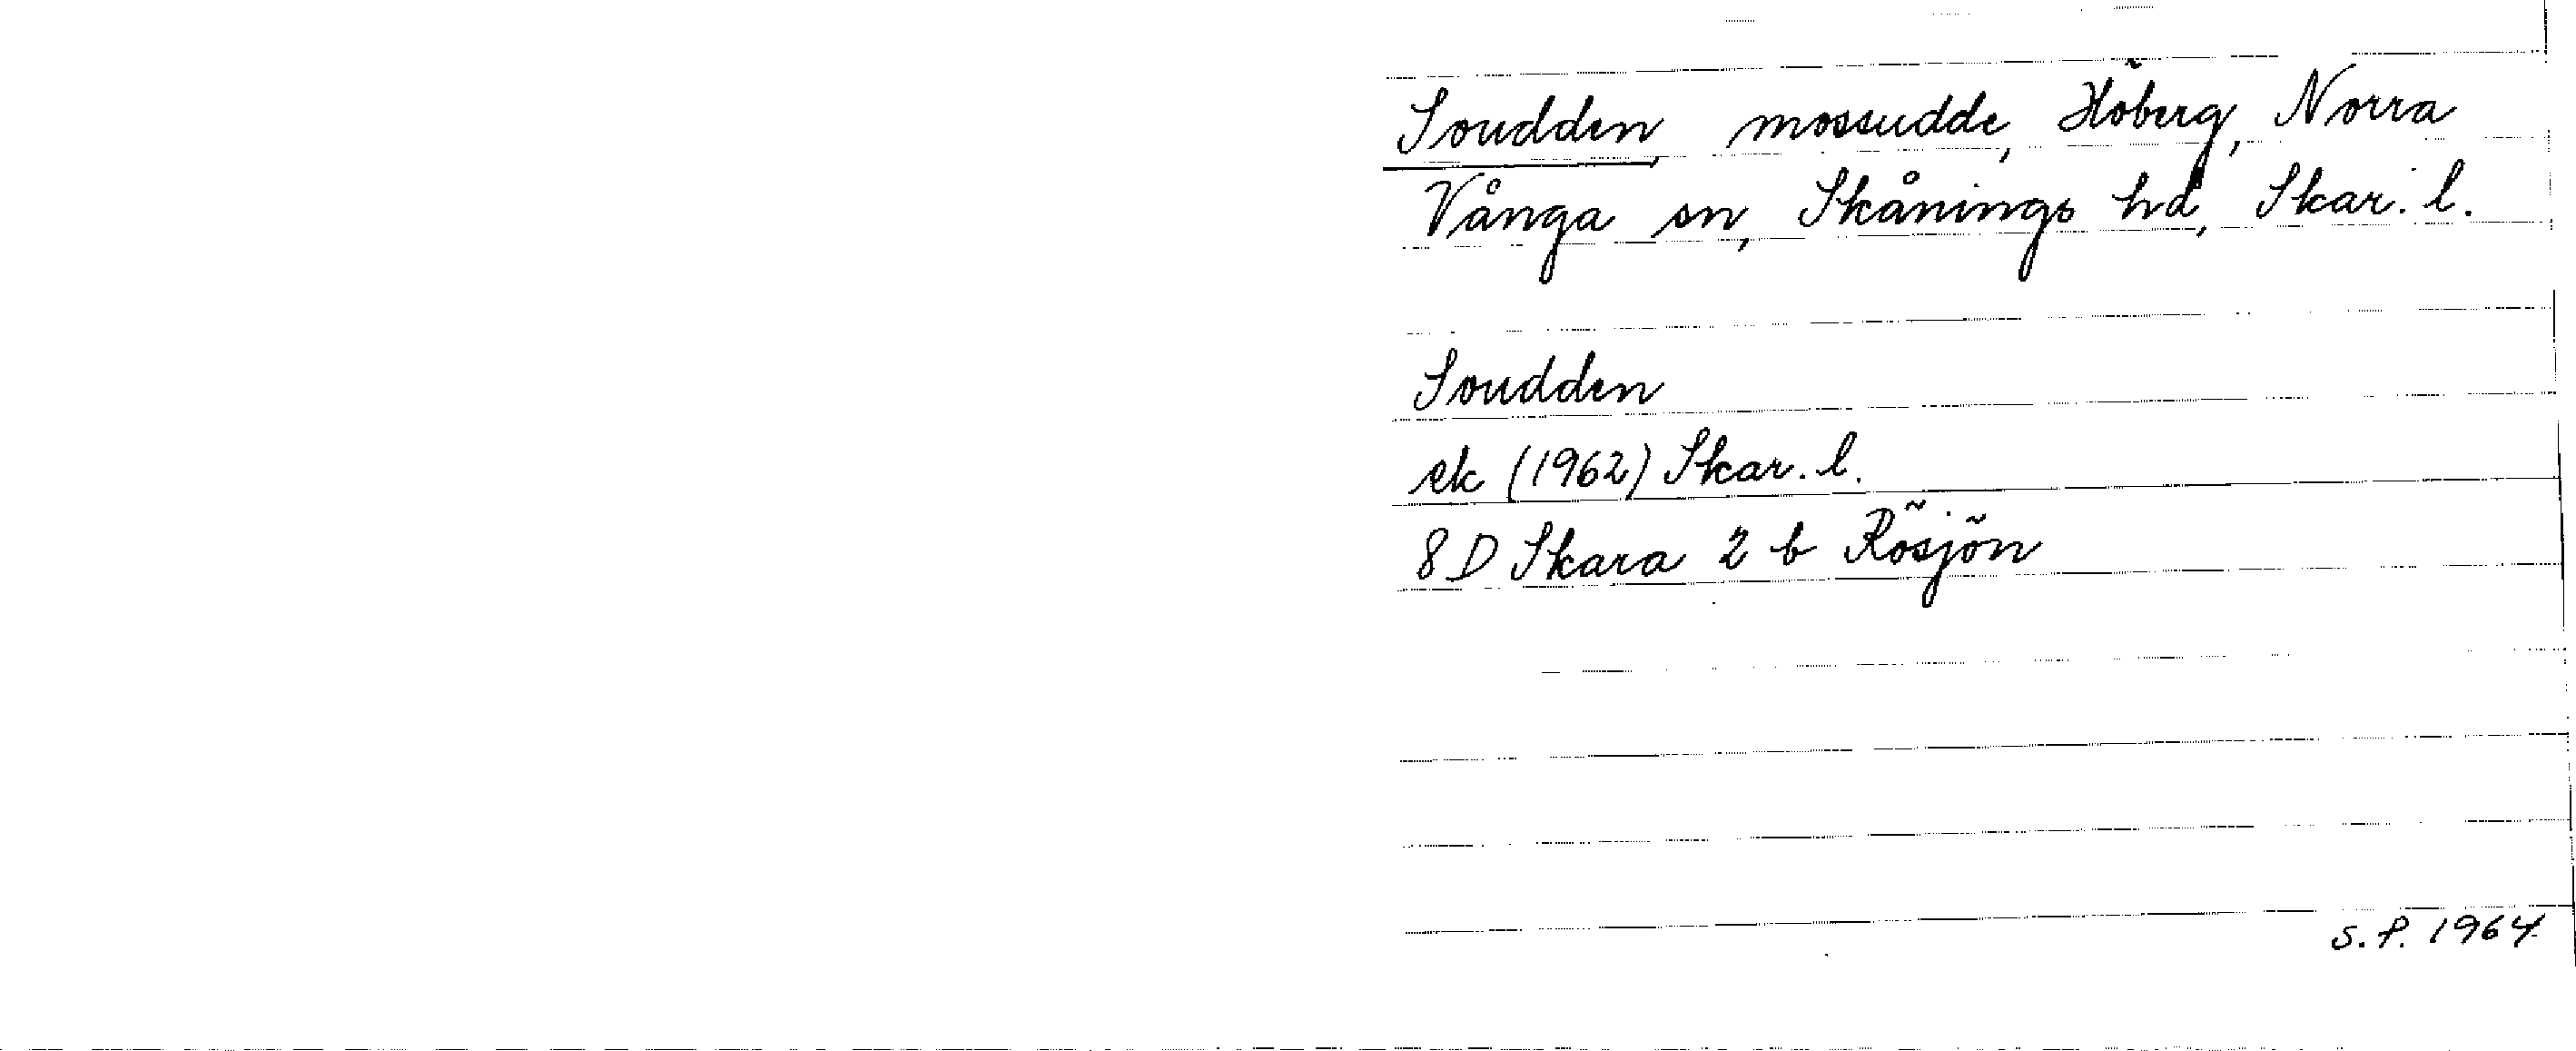 Soudden, mossudde, Höberg, Norra
Vånga sn, Skånings hd, Skar. l.
Soudden
ek (1962) Skar. l.
8 D Skara 2 b Rösjön
S.P. 1964